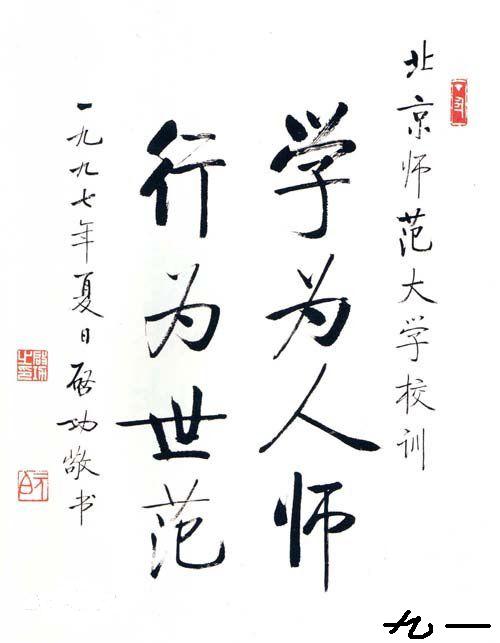 北京师范大学校训
学为人师
行为世范
一九九七年夏日启功敬书
九一